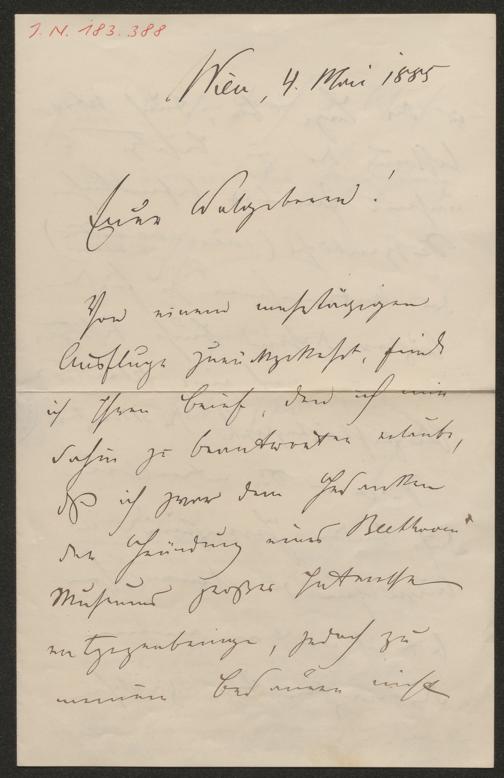 J. N. 183.388
Wien, 4. Mai 1885
Euer Wolgeboren!
Von einem mehrtägigen
Ausfluge zurückgekehrt, finde
ich Ihren Brief, den ich mir
dahin zu beantworten erlaube,
daß ich zwar dem Gedanken
der Gründung eines Beethoven
Museums großes Interesse
entgegenbringe, jedoch zu
meinem Bedauern nicht